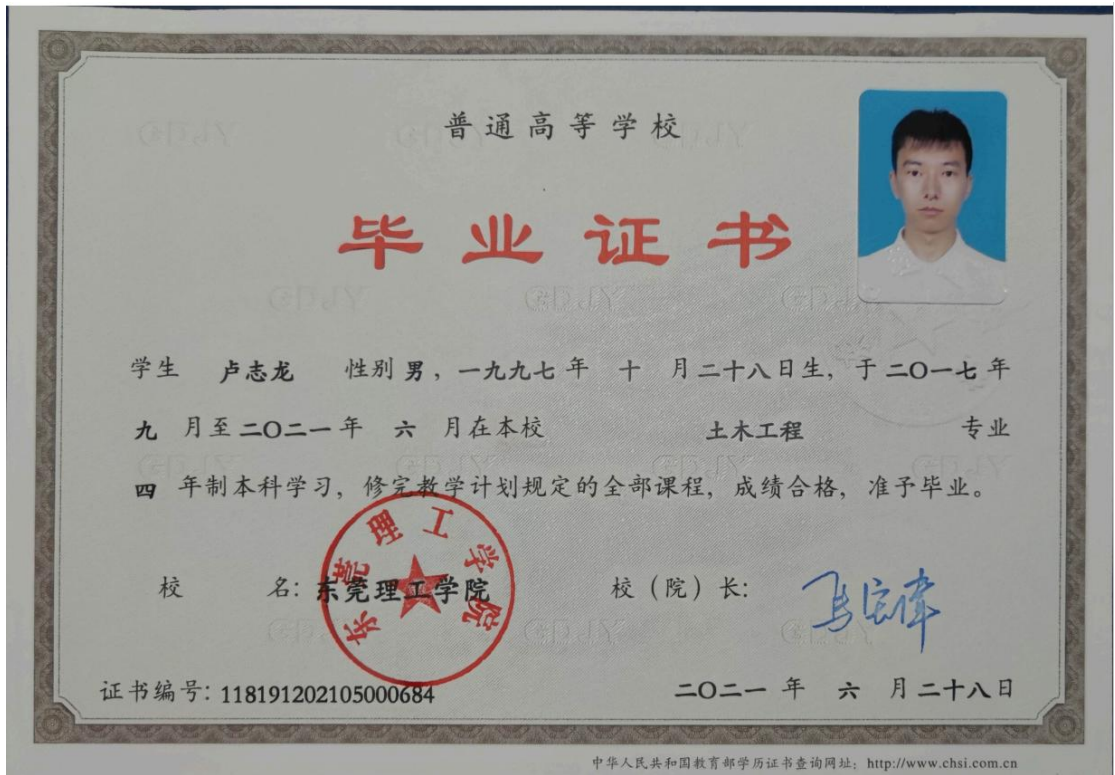 普通高等学校
毕业证书
学生 卢志龙 性别 男，一九九七 年 十 月 二十八 日生，于 二〇一七 年
九 月至 二〇二一 年 六 月在本校 土木工程 专业
四 年制本科学习，修完教学计划规定的全部课程，成绩合格，准予毕业。
校 名：东莞理工学院 校（院）长：
东莞理工学院
证书编号：118191202105000684 二〇二一 年 六 月 二十八 日
中华人民共和国教育部学历证书查询网址：http://www.chsi.com.cn